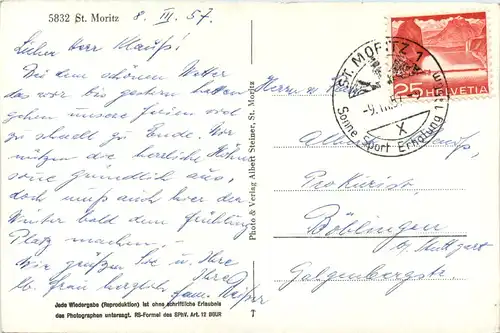 5832 St. Moritz
8. III. 57.
Lieber Herr Klauss!
Bei dem schönen Wetter
das wir bis gestern hatten
gehen unsere Ferien viel
zu schnell zu Ende. Wir
nützen die herrliche Höhen-
sonne
aus,
doch muss auch hier der
Winter bald dem Frühling
Platz machen.
Wir grüßen Sie u. Ihre
lb. Frau herzlich Ihre
Fam.
Jede Wiedergabe (Reproduktion) ist ohne schriftliche Erlaubnis
des Photographen untersagt. RS-Formel des SPhV. Art. 12 BGUR
Photo & Verlag Albert Steiner, St. Moritz
7
ST. MORITZ 1
Sonne Sport Erholung
X
25 HELVETIA
Herrn u. Frau
Prokurist
Böblingen
b/ Stuttgart
Galgenbergstr.